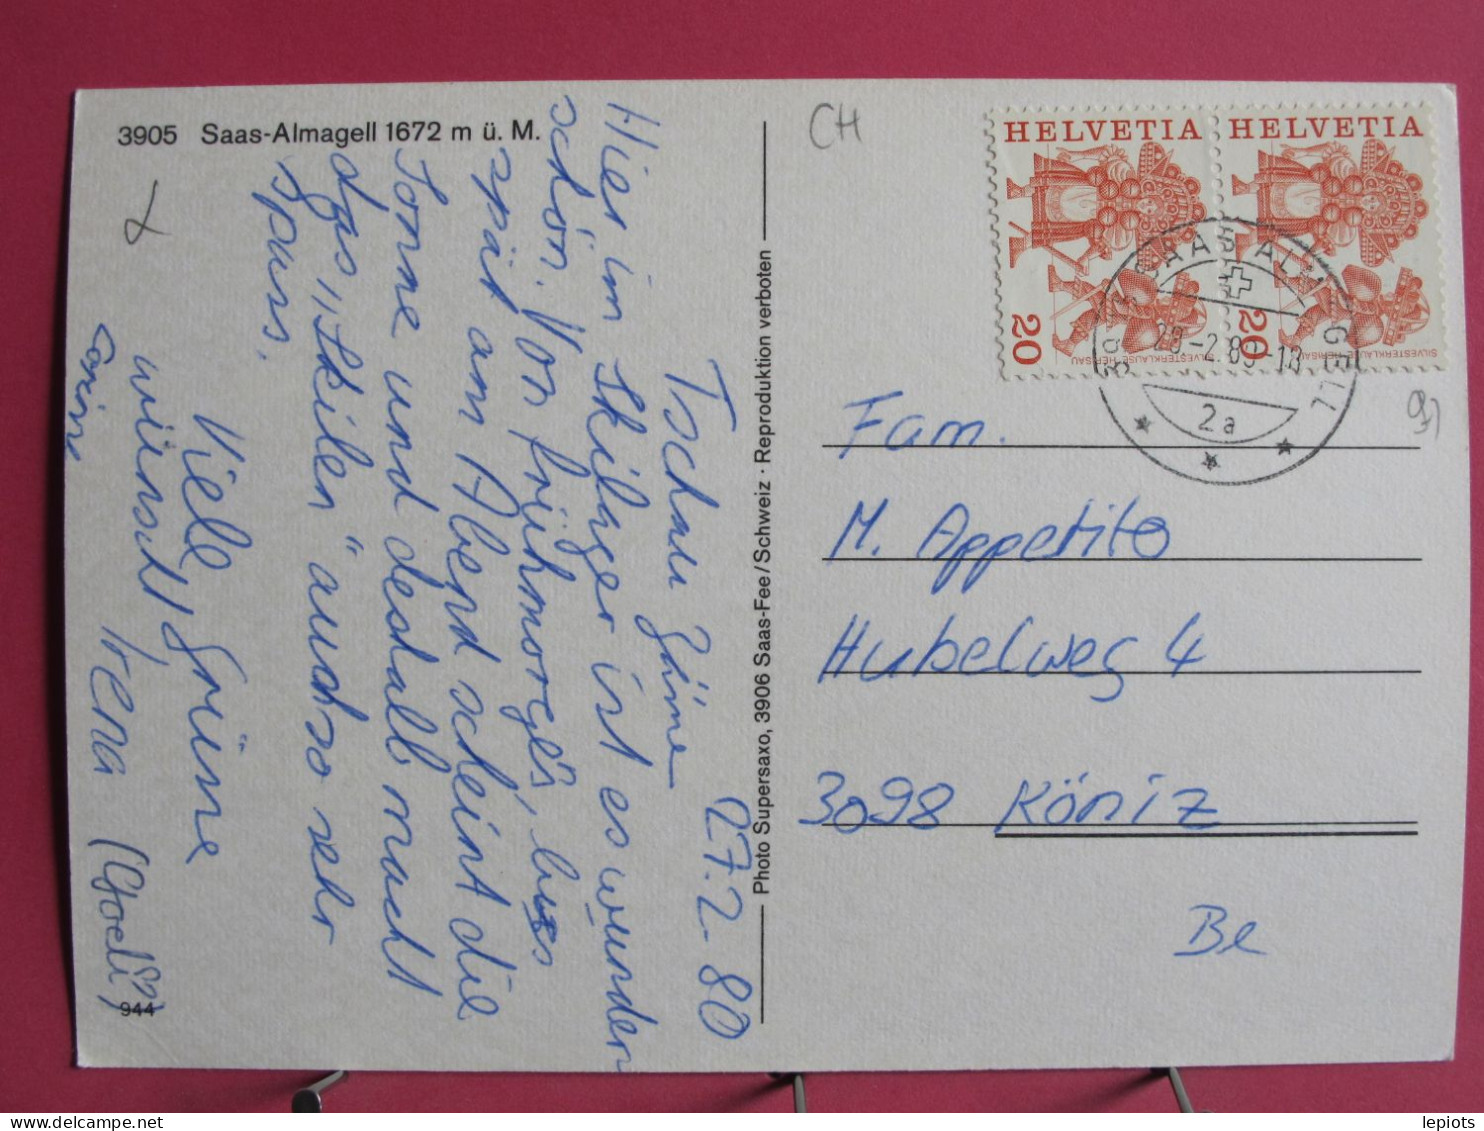 3905 Saas-Almagell 1672 m ü. M.
27.2.80
Tschau Zäme
Hier im Skilager ist es wunder
schön. Von frühmorges, bis
spät am Abend scheint die
Sonne und deshalb macht
das „Skilen" auch so sehr
Spass.
Viele Grüne
wünscht Irena
944
Photo Supersaxo, 3906 Saas-Fee/Schweiz · Reproduktion verboten
CH
HELVETIA
20
SILVESTERKLAUSE HERISAU
HELVETIA
20
SILVESTERKLAUSE HERISAU
SAAS ALMAGELL
2a
Fam.
M. Appetito
Hubelweg 4
3098 Köniz
Be
lepiots